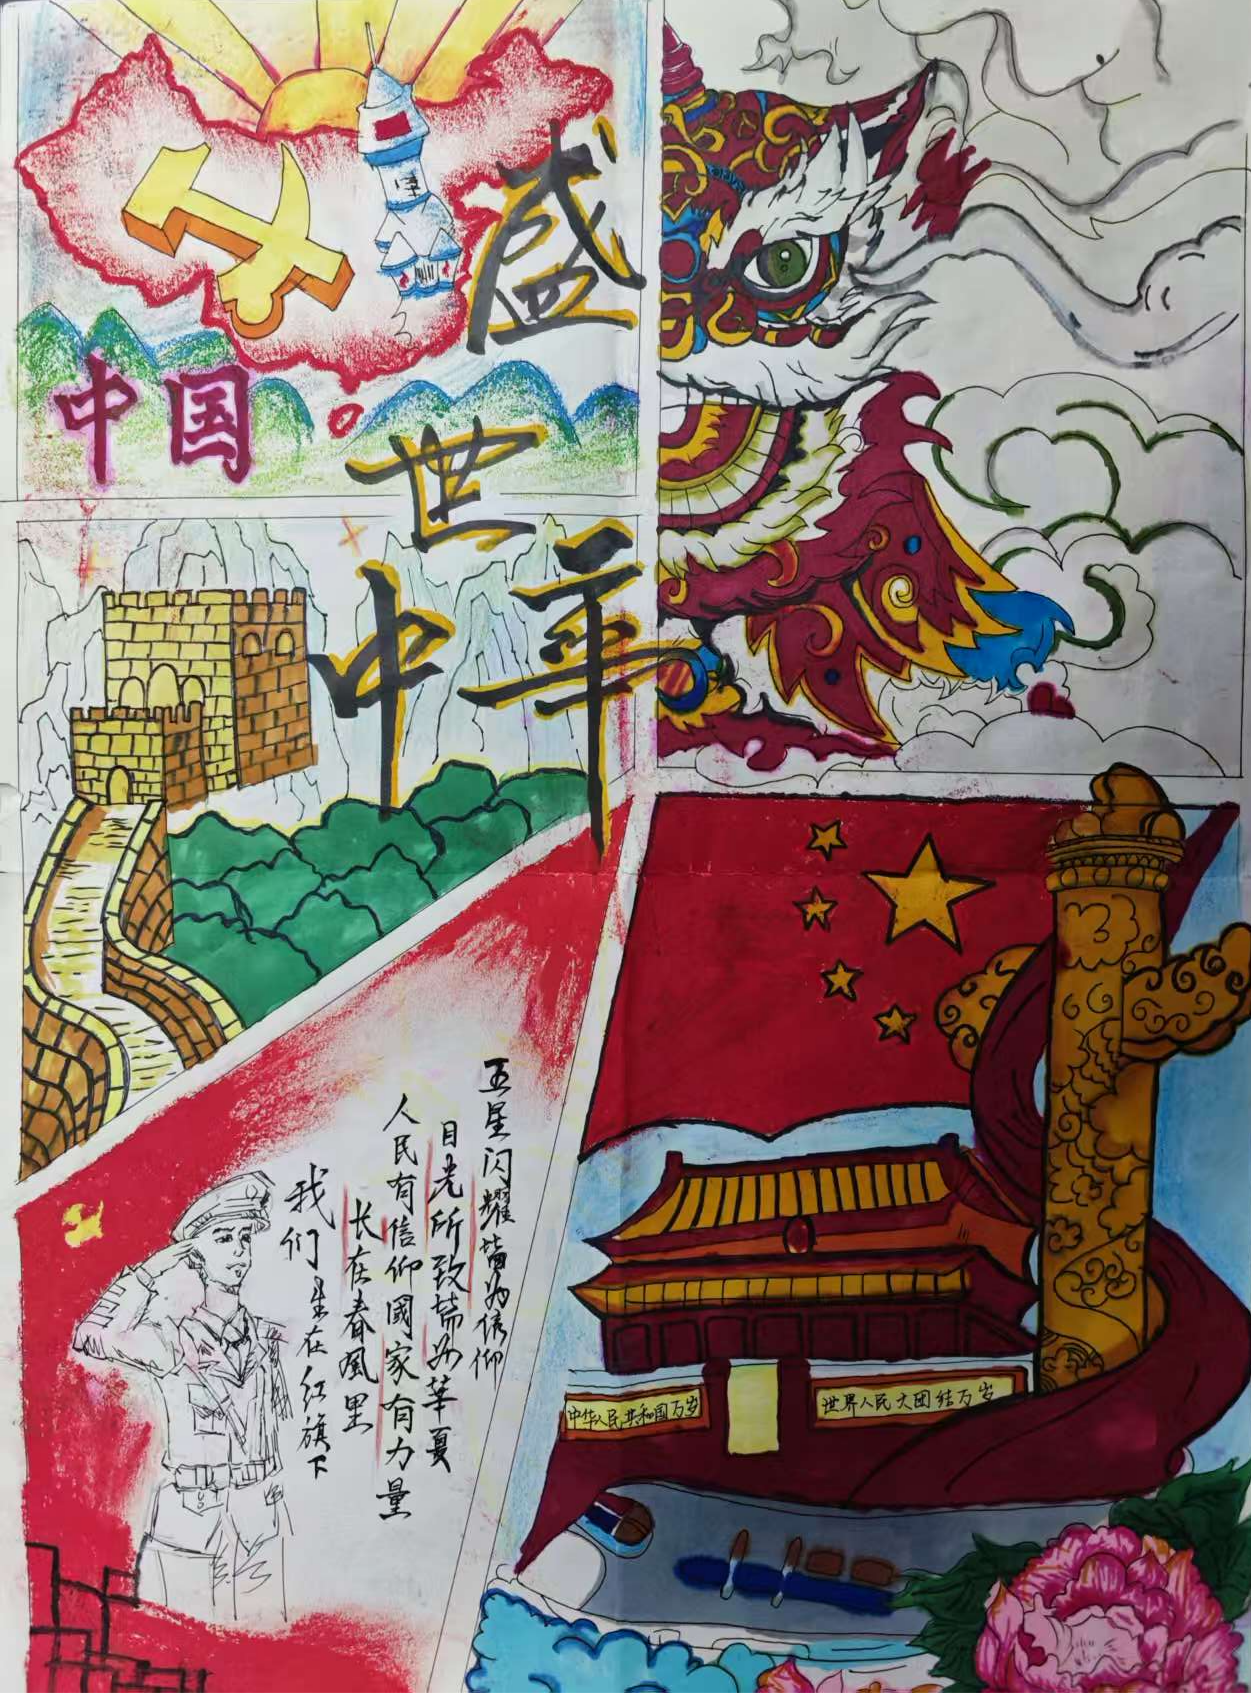 中国
盛
世
中
华
五星闪耀皆为信仰
目光所致皆为華夏
人民有信仰國家有力量
长在春風里
我们生在红旗下
中华人民共和国万岁
世界人民大团结万岁